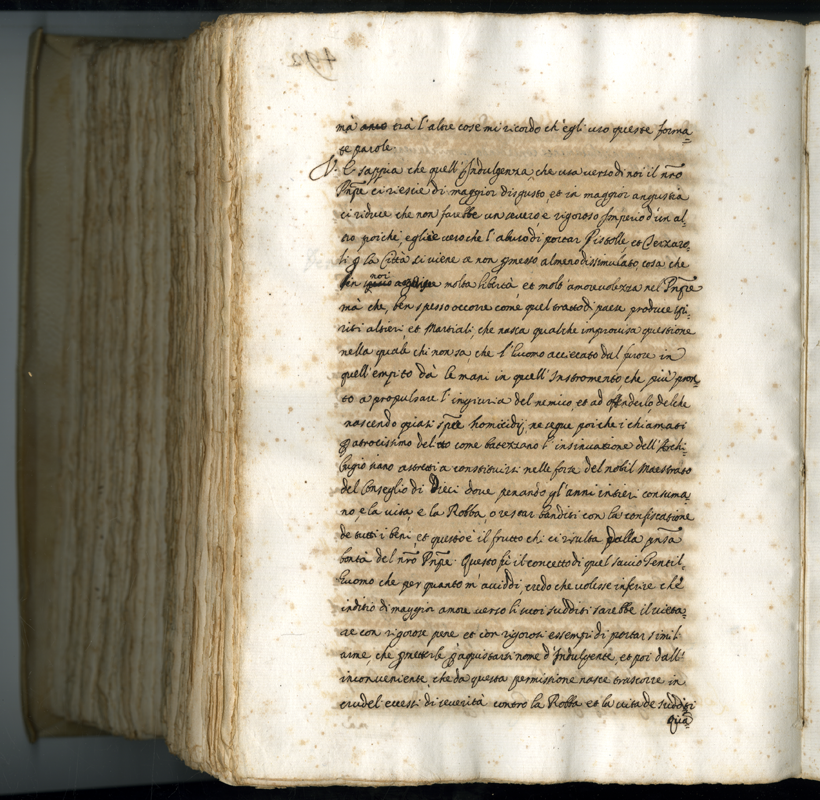 492
mà trà l'altre cose mi ricordo ch'egli uso queste forma=
te parole.
V. E. sappia che quell'Indulgenza che usa verso di noi il nr̃o
Pnp̃e ci riesce di maggior disgusto et in maggior angustia
ci riduce che non farebbe un severo e rigoroso Imperio d'un al=
tro poiche, egli è vero che l'abuso di portar Pistolle et Terzaro=
li ꝑ la Città si viene a non ꝑmesso almeno dissimulato, cosa che
in noi molta libertà et molt'amorevolezza nel Pnp̃e
mà che, ben spesso occorre come quel tratto di paese produce spi=
riti altieri et Martiali, che nasca qualche improvisa questione
nella quale chi non sa che l'huomo acciecato dal furore in
quell'empito dà le mani in quell'Instromento che più pron
to a propulsare l'ingiuria del nemico, et ad offenderlo, del che
nascendo quasi homicidij, ne segue poi che i chiamati
ꝑ atrocissimo delitto come batezzano l'insinuatione dell'Archi=
bugio siano astretti a constituirsi nelle forze del nobil Maestrato
del Conseglio di Dieci dove penando gl'anni intieri consuma=
no, e la vita, e la Robba, o restar banditi con la confiscatione
de tutti i beni, et questo è il frutto chi ci risulta dalla
bontà del nr̃o Pnp̃e. Questo fù il concetto di quel savio Gentil=
huomo che per quanto m'aviddi, credo che volesse inferire che
inditio di maggior amore verso li suoi sudditi sarebbe il vieta=
re con rigorose pene et con rigorosi essempi di portar simil
arme, che ꝑmetterle ꝑ aquistarsi nome d'Indulgente, et poi dall'
inconveniente che da questa permissione nasce trascorre in
crudel eccessi di severità contro la Robba et la vita de sudditi